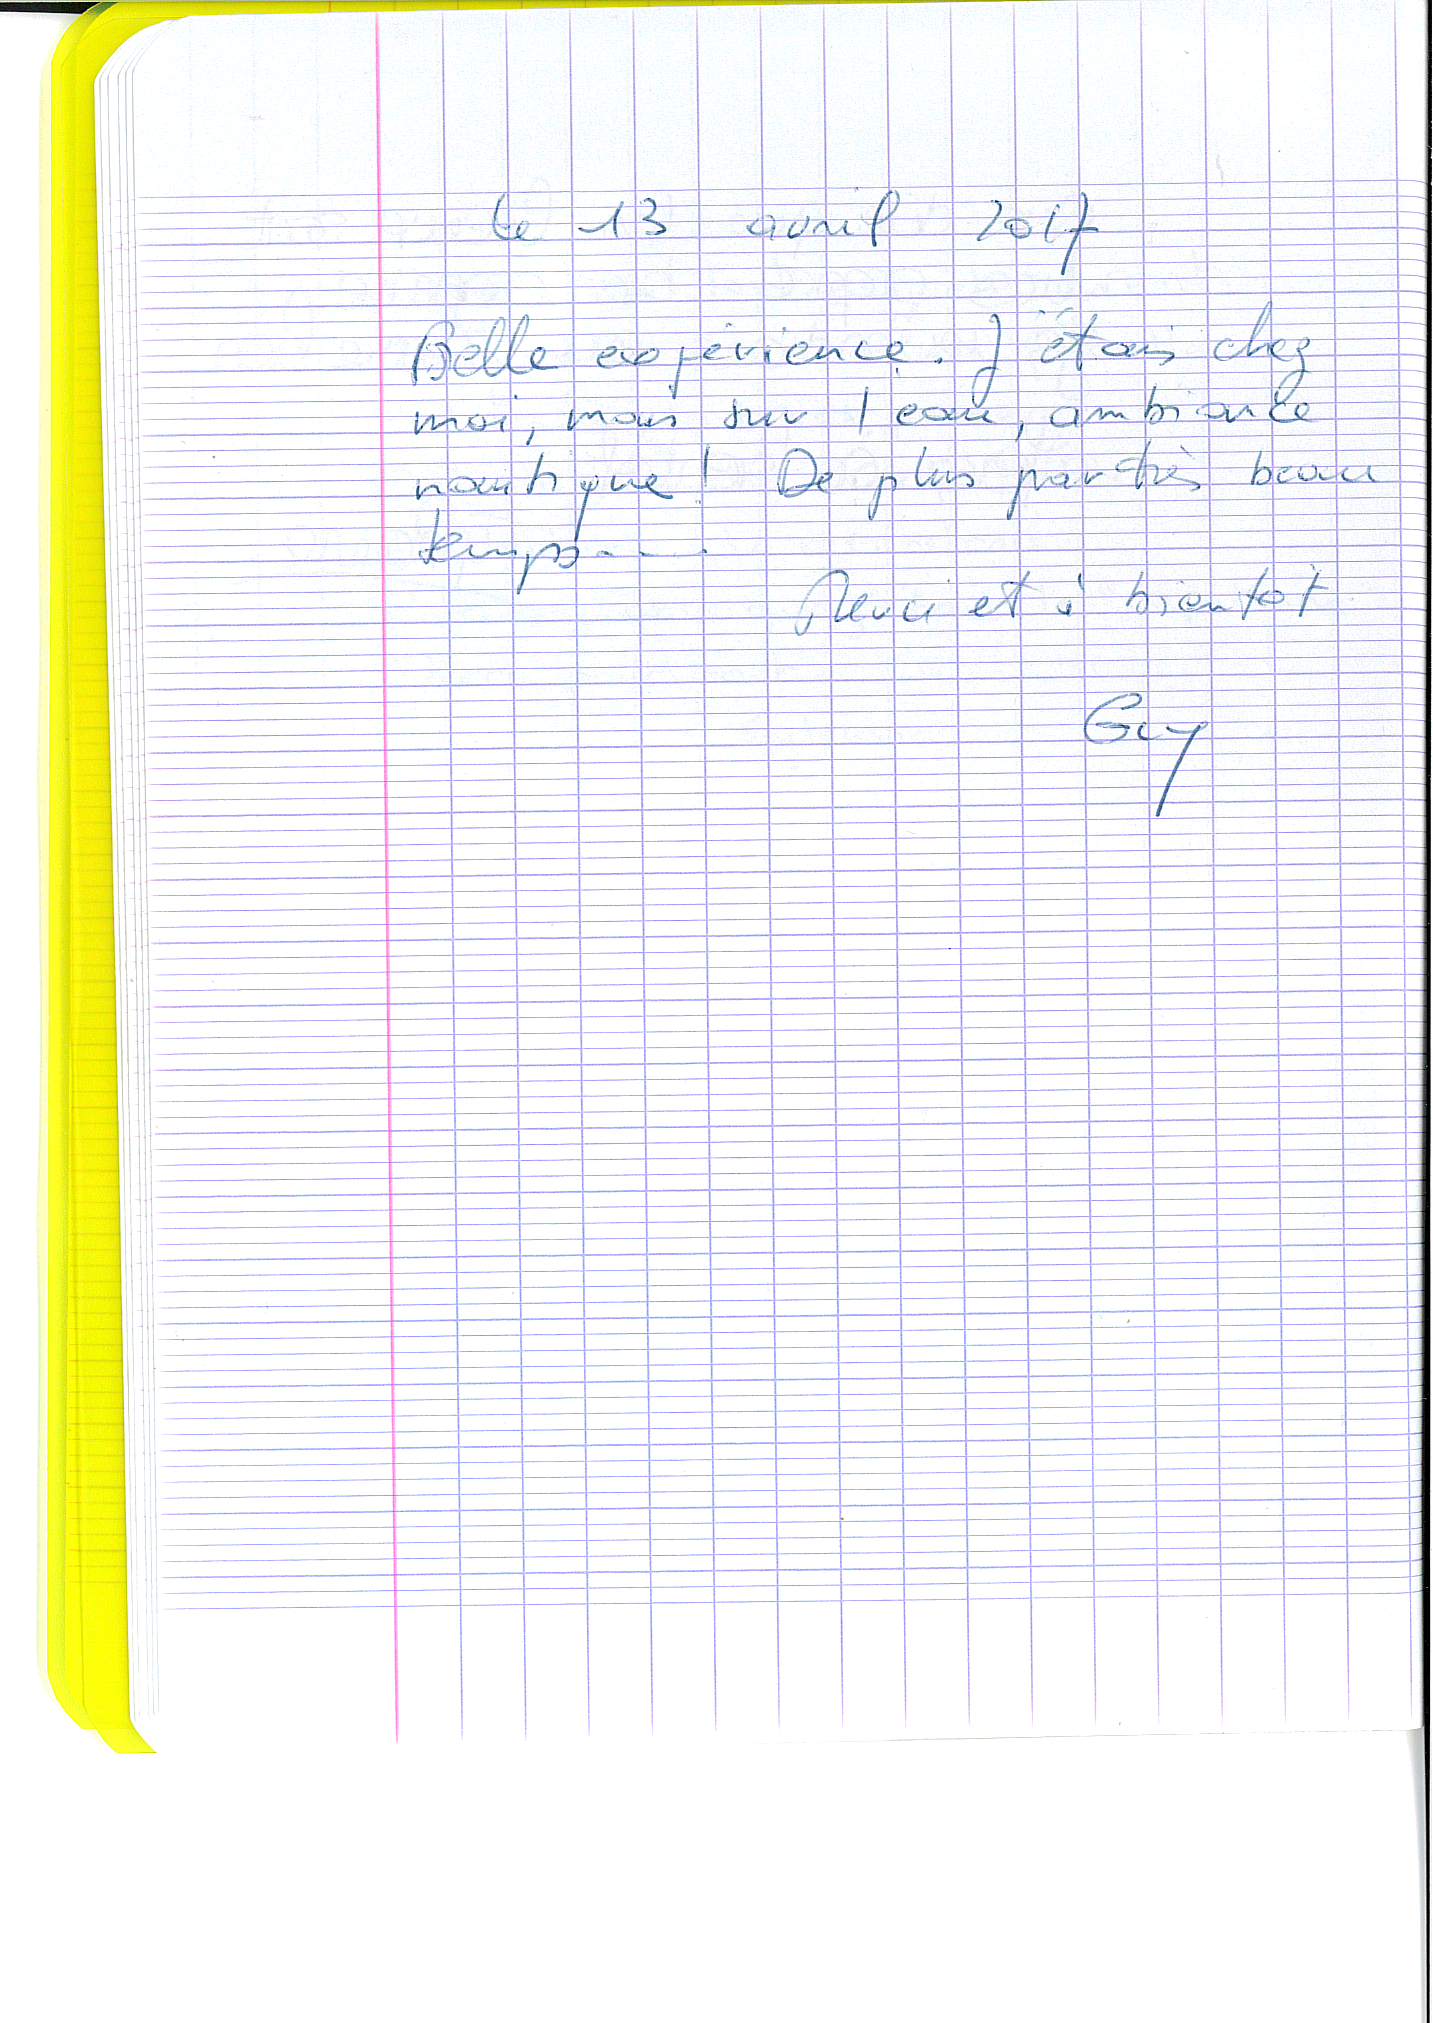 le 13 avril 2017
Belle expérience. J'étais chez
moi, mais sur l'eau, ambiance
nautique ! De plus par très beau
temps....
Merci et à bientot
Guy